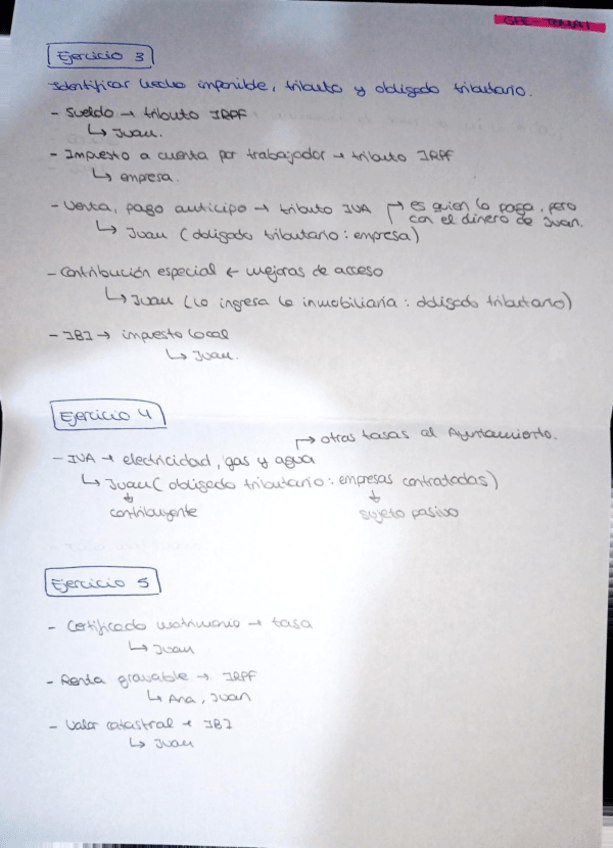 GFE - TEMA 1
Ejercicio 3
Identificar hecho imponible, tributo y obligado tributario.
- Sueldo → tributo IRPF
↳ Juan.
- Impuesto a cuenta por trabajador → tributo IRPF
↳ empresa.
- Venta, pago anticipo → tributo IVA
↱ es quien lo paga, pero
con el dinero de Juan.
↳ Juan (obligado tributario: empresa)
- Contribución especial ← mejoras de acceso
↳ Juan (lo ingresa la inmobiliaria: obligado tributario)
- IBI → impuesto local
↳ Juan.
Ejercicio 4
↱ otras tasas al Ayuntamiento.
- IVA → electricidad, gas y agua
↳ Juan (obligado tributario: empresas contratadas)
↓ ↓
contribuyente sujeto pasivo
Ejercicio 5
- Certificado matrimonio → tasa
↳ Juan
- Renta gravable → IRPF
↳ Ana, Juan
- Valor catastral → IBI
↳ Juan